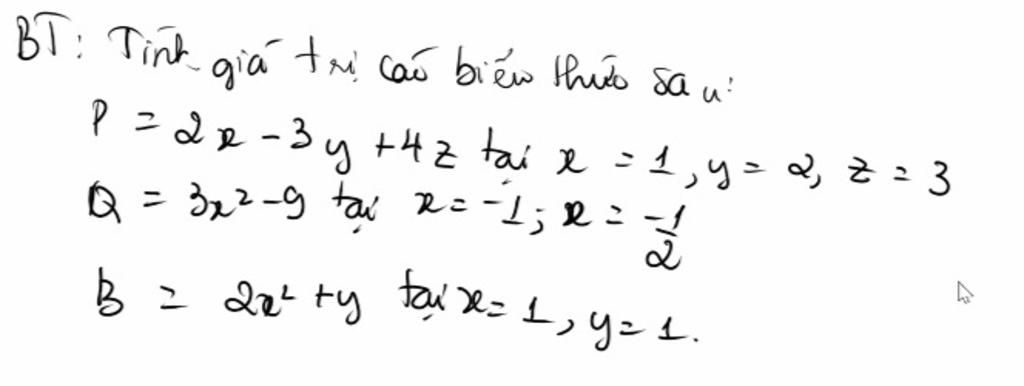 BT: Tính giá trị các biểu thức sau:
P = 2x - 3y + 4z tại x = 1, y = 2, z = 3
Q = 3x² - 9 tại x = -1; x = -1/2
B = 2x² + y tại x = 1, y = 1.